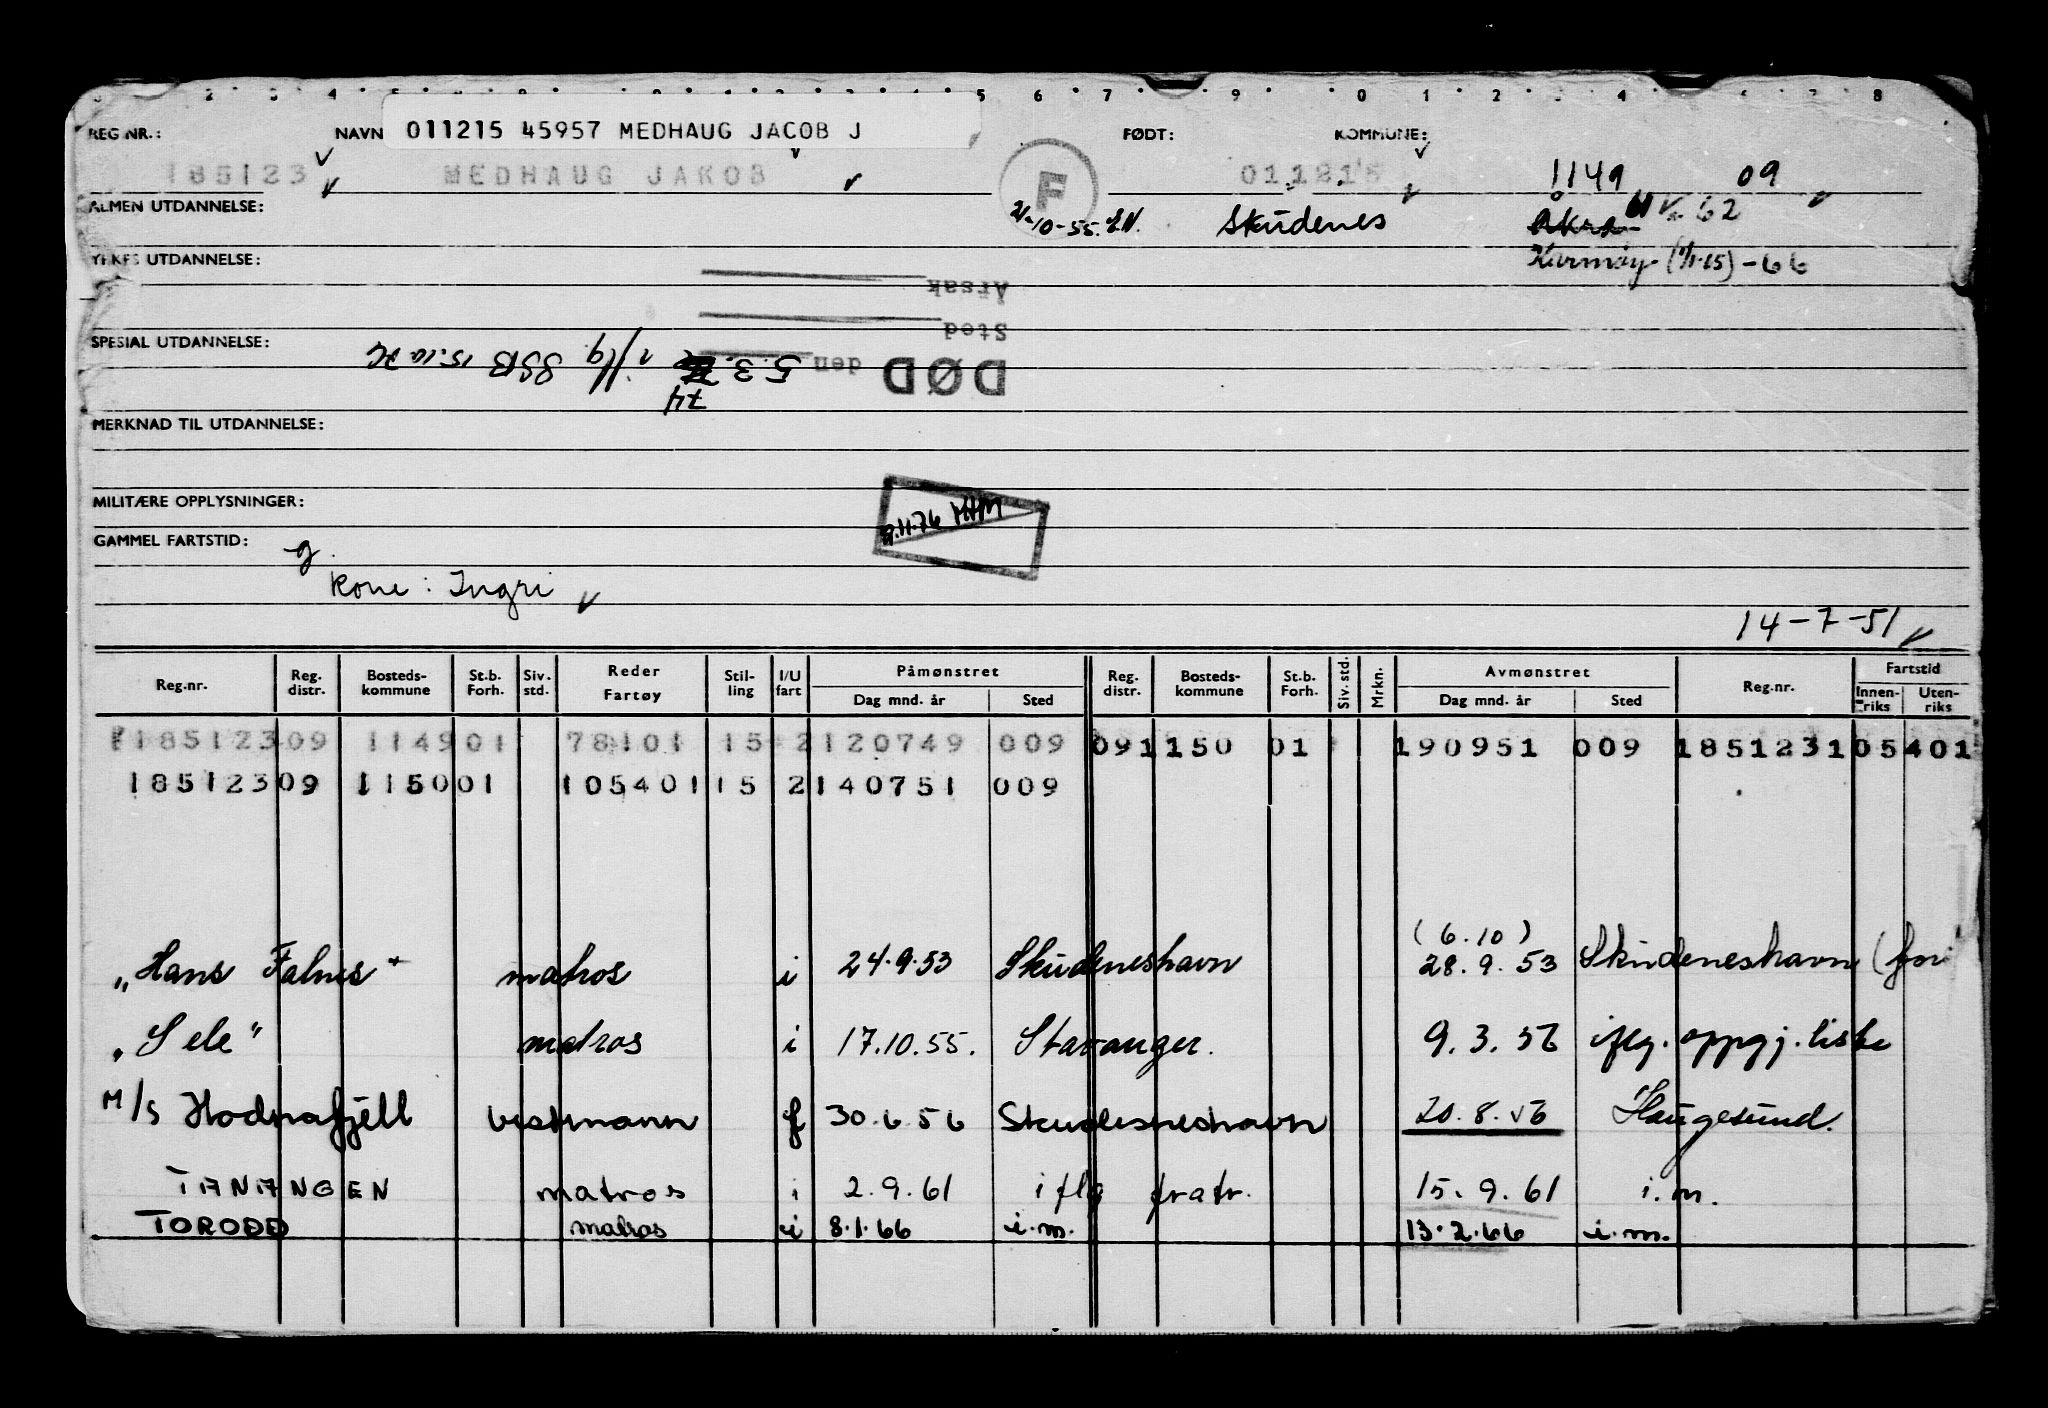 REG NR.: NAVN 011215 45957 MEDHAUG JACOB J FØDT: KOMMUNE:
185123 MEDHAUG JAKOB F 011215 1149 09
ALMEN UTDANNELSE: 21-10-55. EN. Skudenes Åkra 61 - 62
YRKES UTDANNELSE: Karmøy (1/1-65) - 66
Årsak
Sted
SPESIAL UTDANNELSE: DØD den 5.3. 74 iflg. SSB 15.10.76
MERKNAD TIL UTDANNELSE:
MILITÆRE OPPLYSNINGER: 9.11.76 MHM
GAMMEL FARTSTID: g.
Kone: Ingri
14-7-51
Reg.nr. Reg. distr. Bosteds-kommune St.b. Forh. Siv. std. Reder Fartøy Stil-ling I/U fart Påmønstret Dag mnd. år Sted Reg. distr. Bosteds-kommune St.b. Forh. Siv. std. Mrkn. Avmønstret Dag mnd. år Sted Reg.nr. Fartstid Innen-riks Uten-riks
185123 09 1149 01 78101 15 2 120749 009 09 1150 01 190951 009 185123 105401
185123 09 1150 01 105401 15 2 140751 009
(6.10)
"Hans Falnes" matros i 24.9.53 Skudeneshavn 28.9.53 Skudeneshavn
"Sele" matros i 17.10.55. Stavanger. 9.3.56 iflg. oppgj. liste
M/S Hodnafjell bestmann f 30.6.56 Skudesneshavn 20.8.56 Haugesund.
TANANGEN matros i 2.9.61 iflg fratr. 15.9.61 i.m.
TORODD matros i 8.1.66 i.m. 13.2.66 i.m.